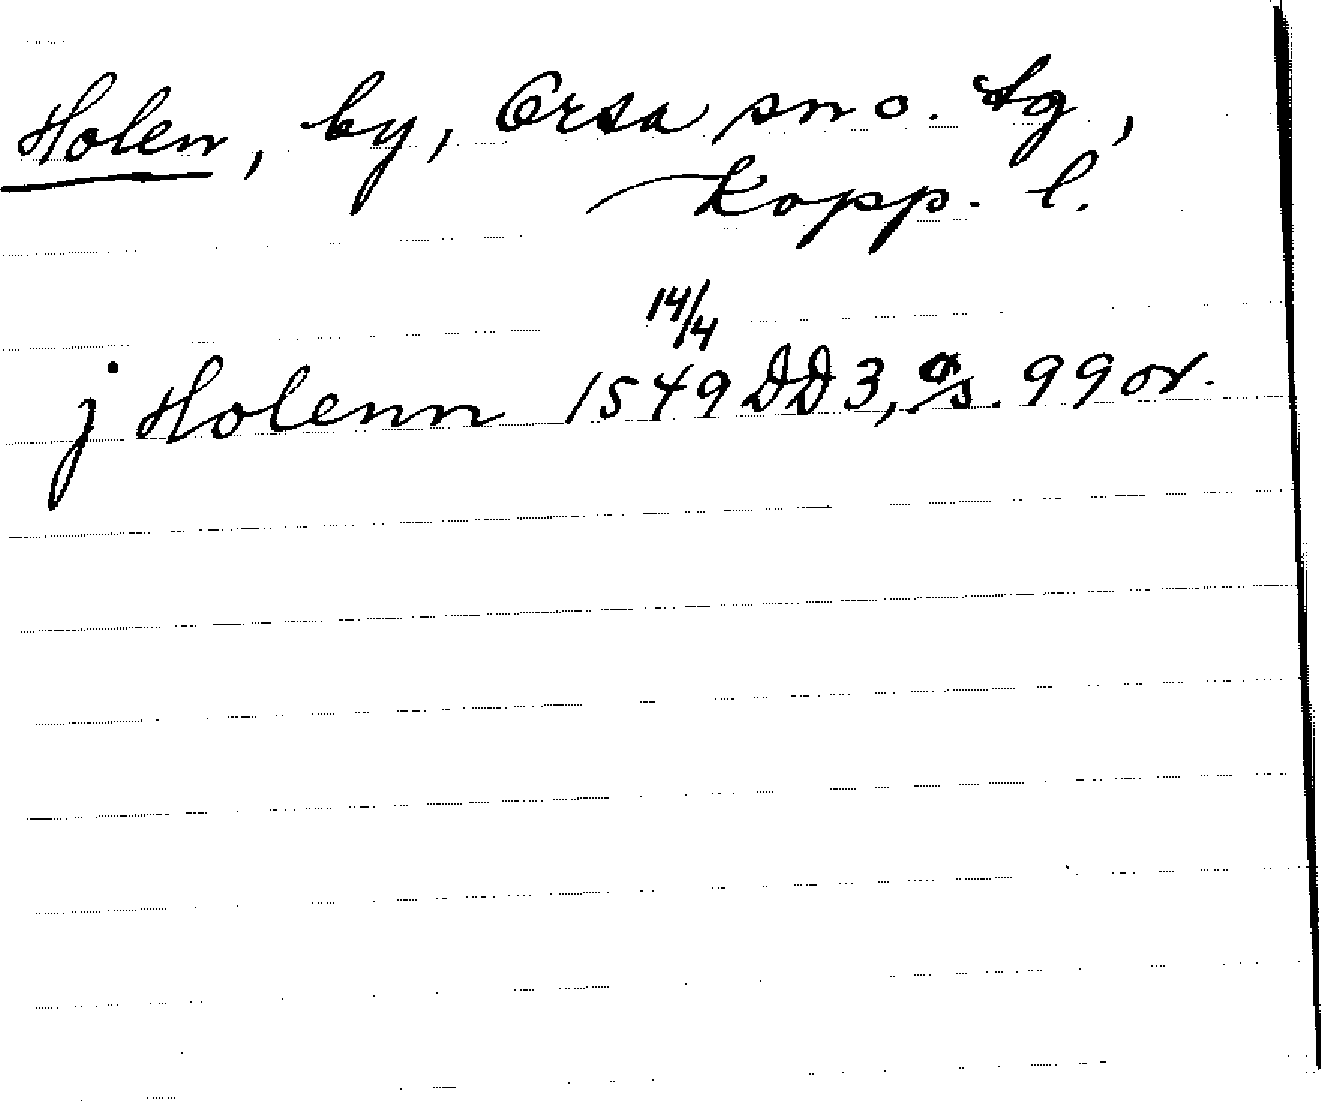 Holen, by, Orsa sn o. tg,
Kopp. l.
14/4
j Holenn 1549 DD 3, s. 99 or.